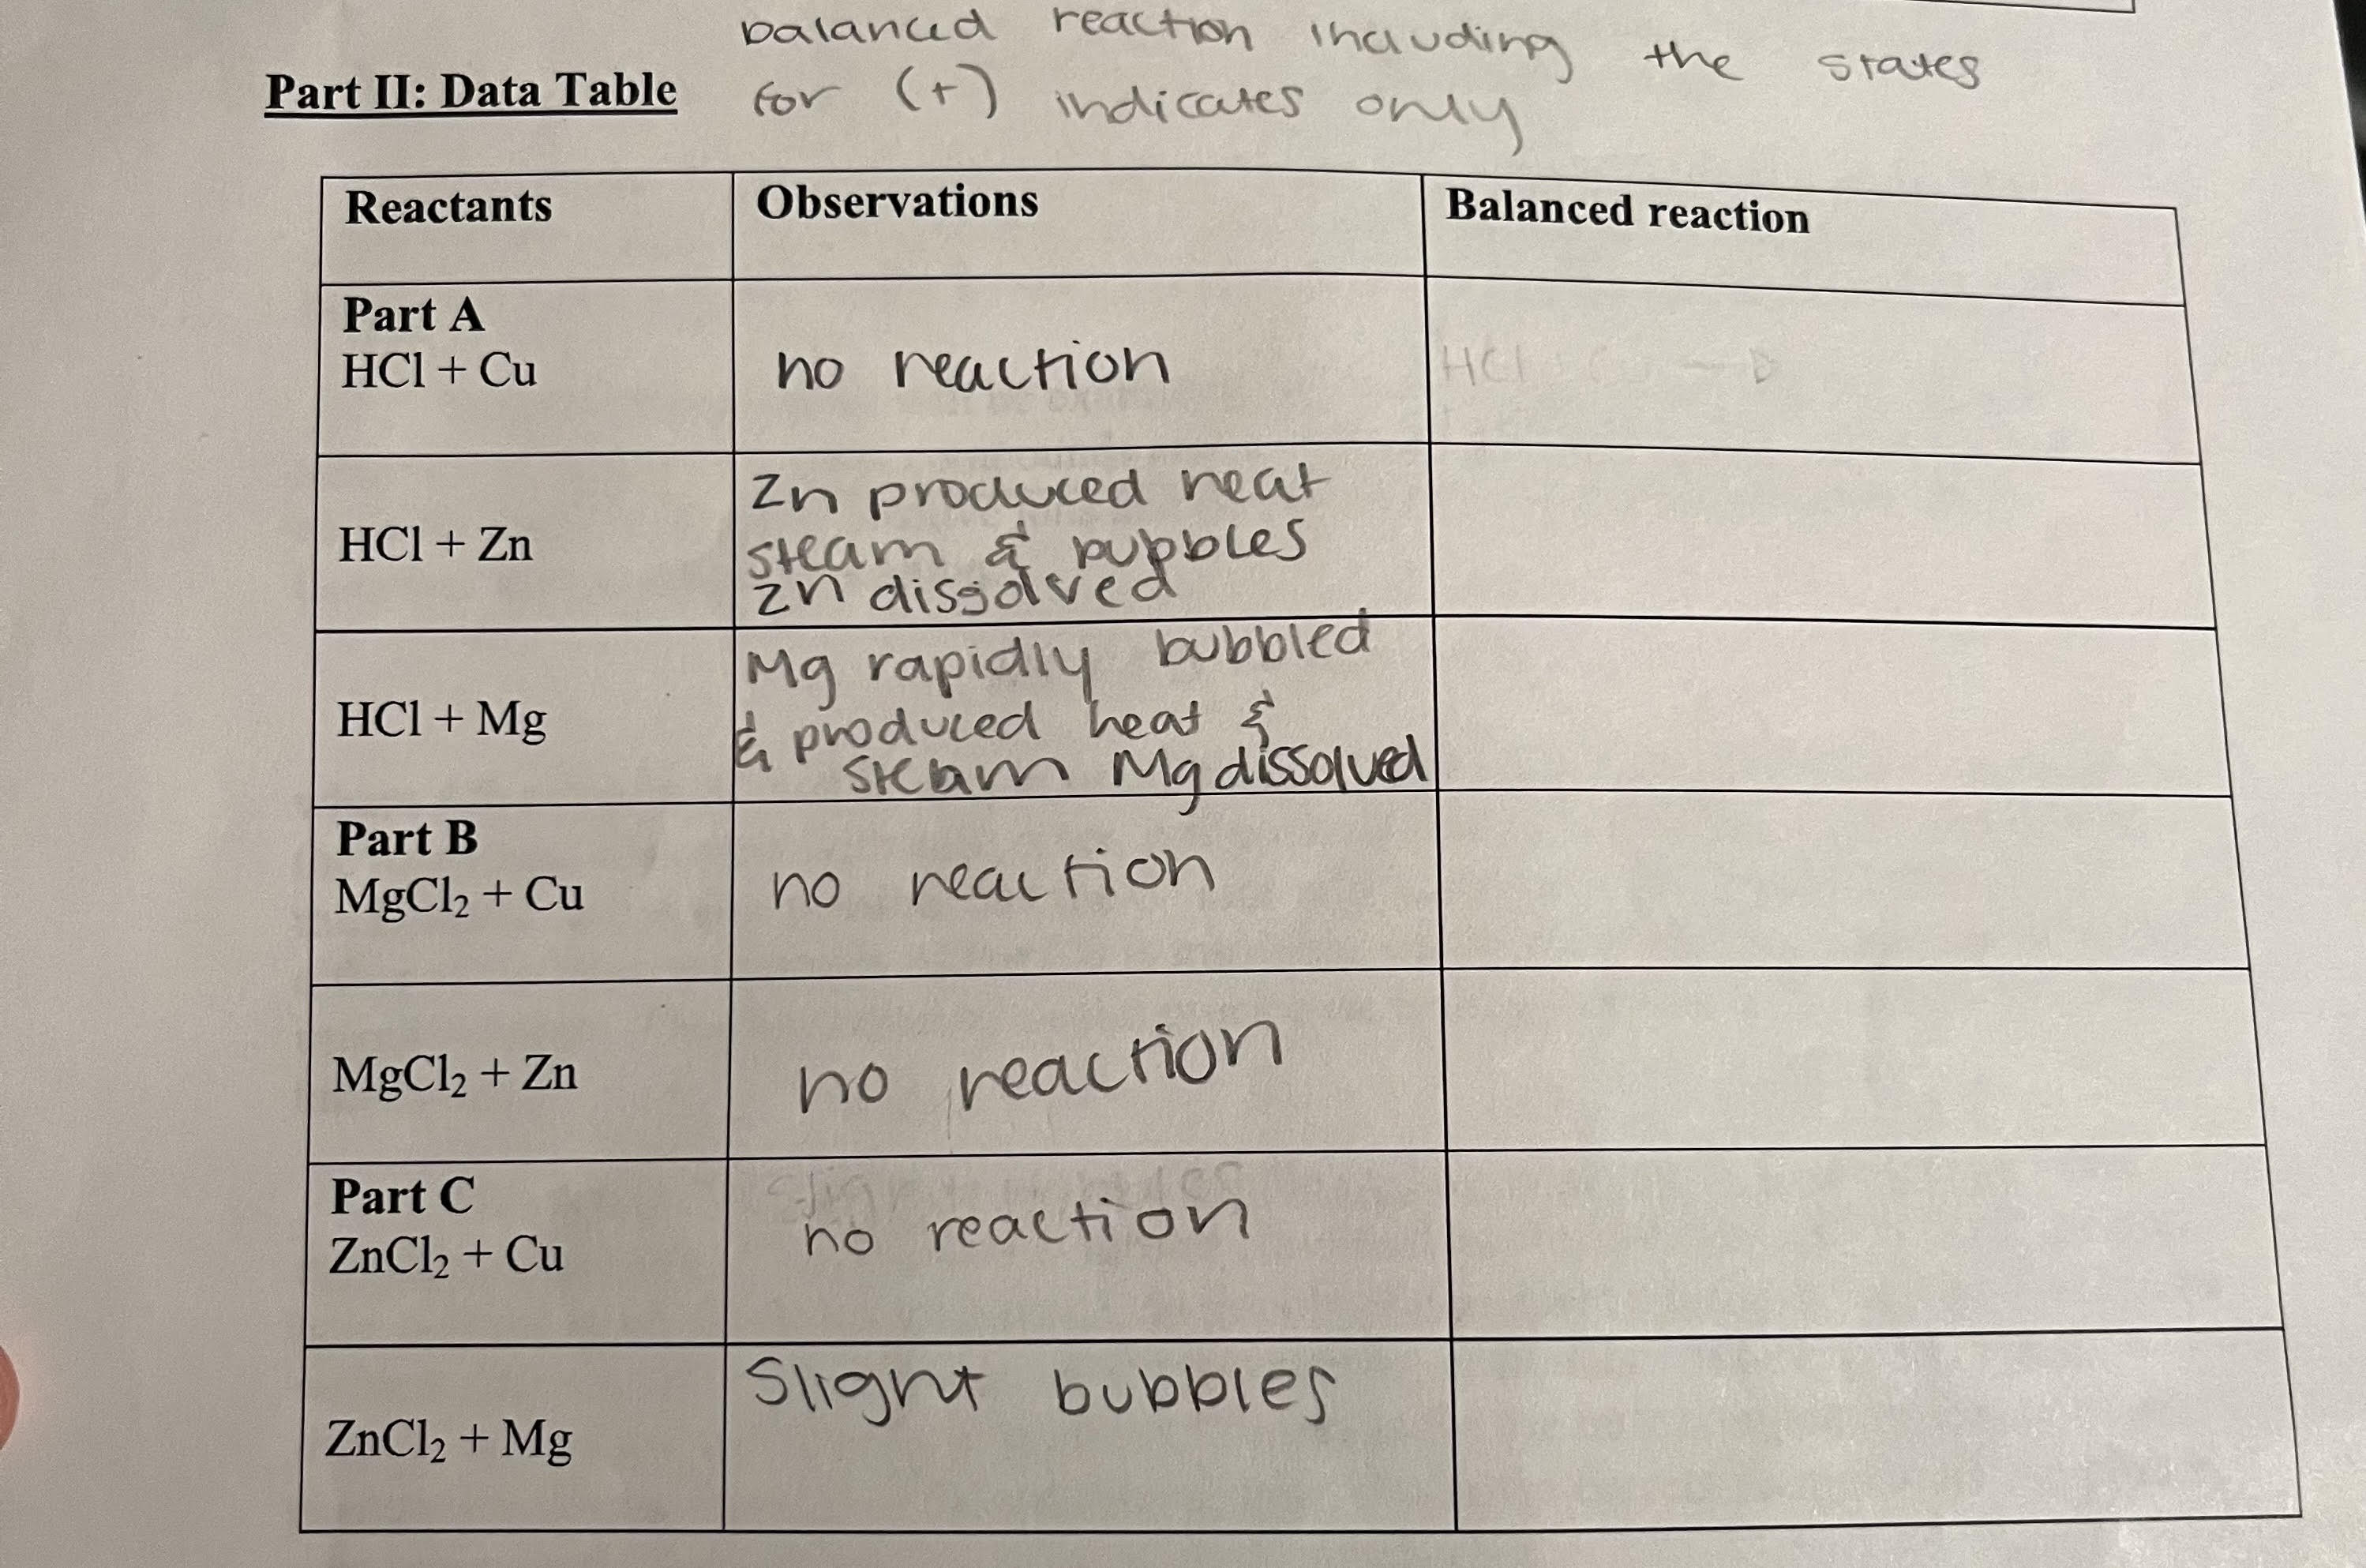 balanced reaction including the states
Part II: Data Table for (+) indicates only
Reactants Observations Balanced reaction
Part A
HCl + Cu no reaction HCl Cu →
Zn produced heat
HCl + Zn steam & bubbles
Zn dissolved
Mg rapidly bubbled
HCl + Mg & produced heat &
steam Mg dissolved
Part B
MgCl₂ + Cu no reaction
MgCl₂ + Zn no reaction
Part C slight bubbles
ZnCl₂ + Cu no reaction
Slight bubbles
ZnCl₂ + Mg